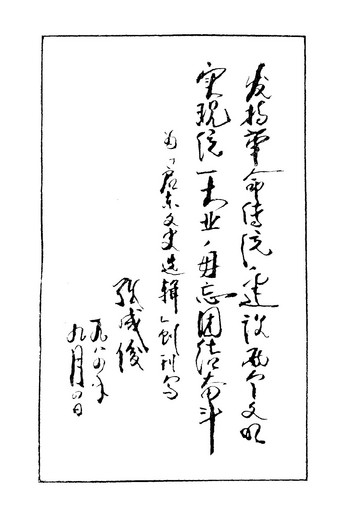 发扬革命传统，建设两个文明
实现统一大业，毋忘团结奋斗
为《启东文史选辑》创刊写
张成俊
一九八四年
九月四日